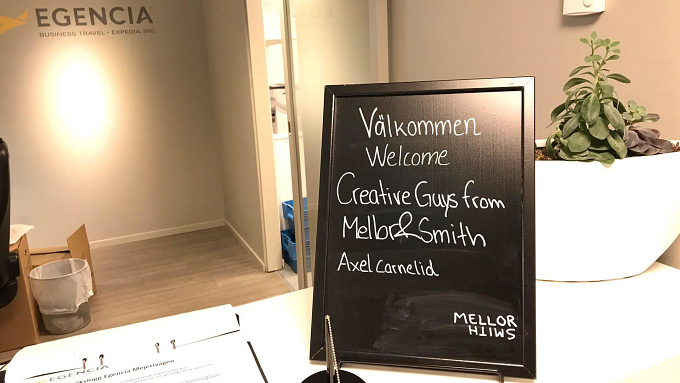 EGENCIA
BUSINESS TRAVEL · EXPEDIA, INC.
Välkommen
Welcome
Creative Guys from
Mellor&Smith
Axel Carnelid
MELLOR
SMITH
EGENCIA
Egencia Mejerivägen